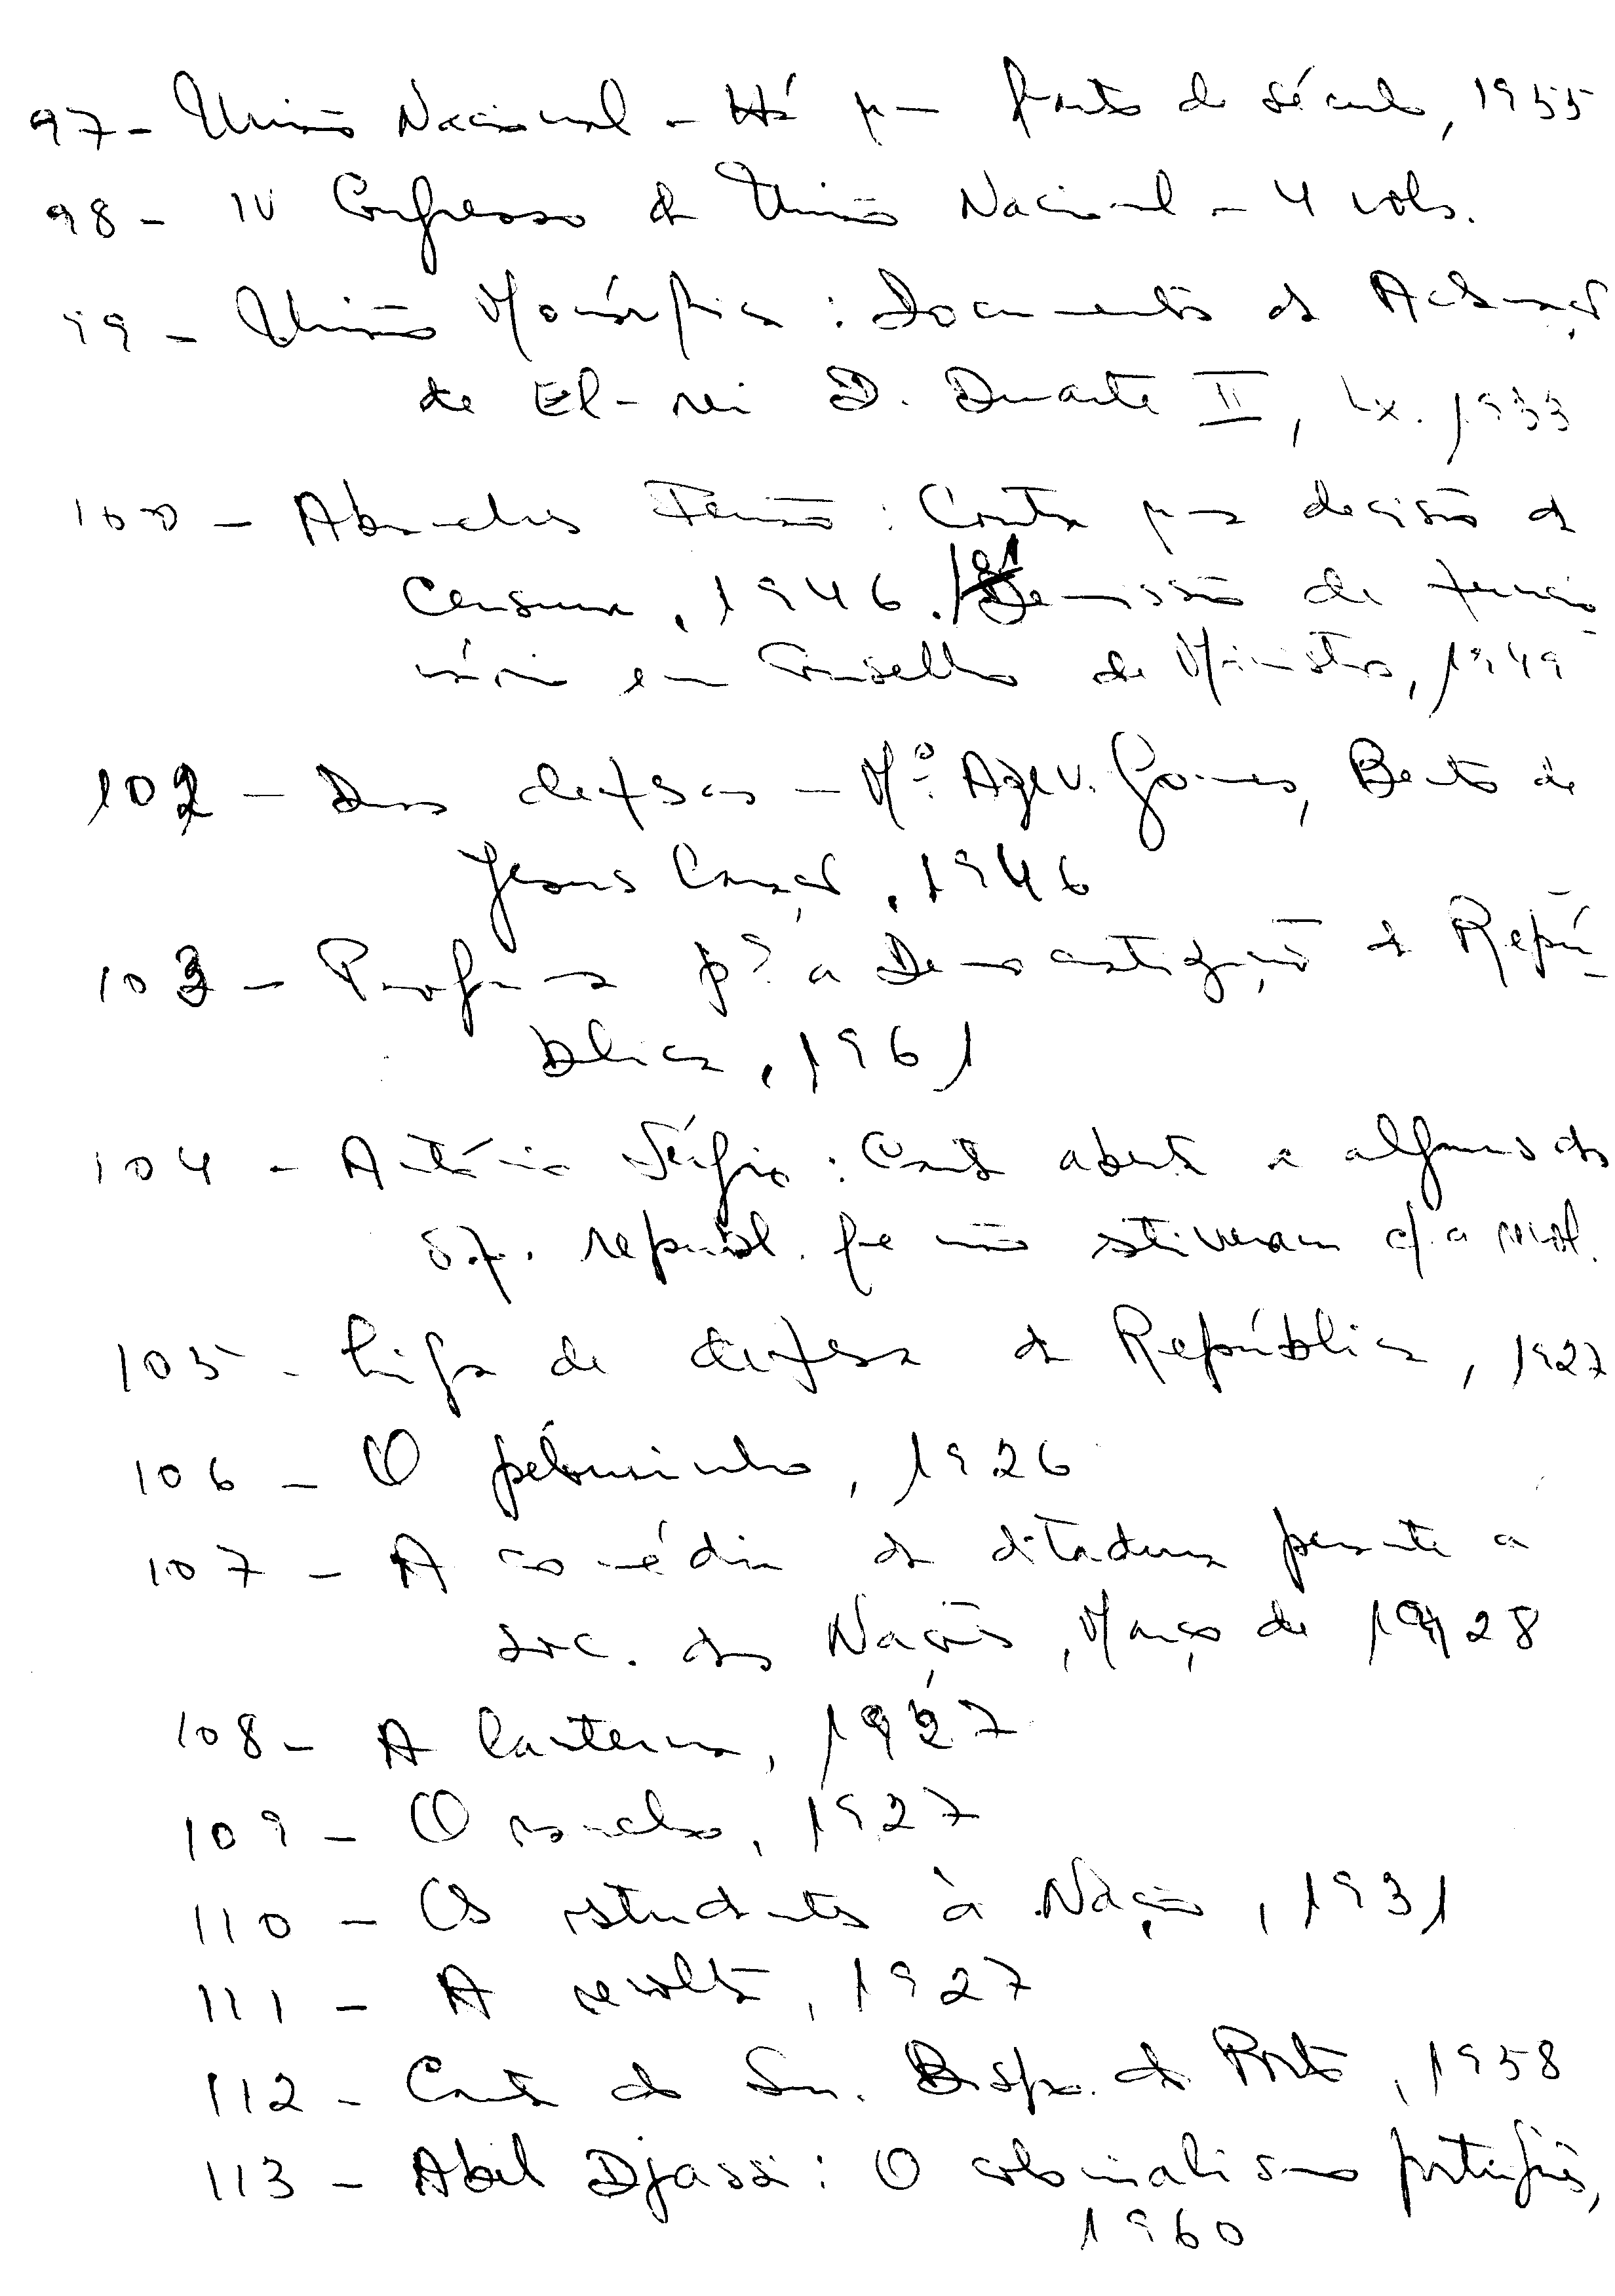 97 - União Nacional - Há um quarto de século, 1955
98 - IV Congresso da União Nacional - 4 vols.
99 - União Monárquica: Documentos da Aclamação
de El-rei D. Duarte II, Lx. 1933
100 - Abranches Ferrão: Contra uma decisão da
Censura, 1946. / 101 Demissão de funcio-
nário em Conselho de Ministros, 1949
102 - Duas defesas - Mº. Azev. Gomes, Bento de
Jesus Caraça, 1946
103 - Programa pª a Democratização da Repú-
blica, 1961
104 - António Sérgio: Carta aberta a alguns dos
of. republ. que não estiveram c/ a revol.
105 - Liga de defesa da República, 1927
106 - O pelourinho, 1926
107 - A comédia da ditadura perante a
soc. das Nações, Março de 1928
108 - A lanterna, 1927
109 - O 1927
110 - Os estudantes à Nação, 1931
111 - A revolta, 1927
112 - Carta do Sr. Bispo do Porto, 1958
113 - Abel Djassi: O colonialismo português,
1960